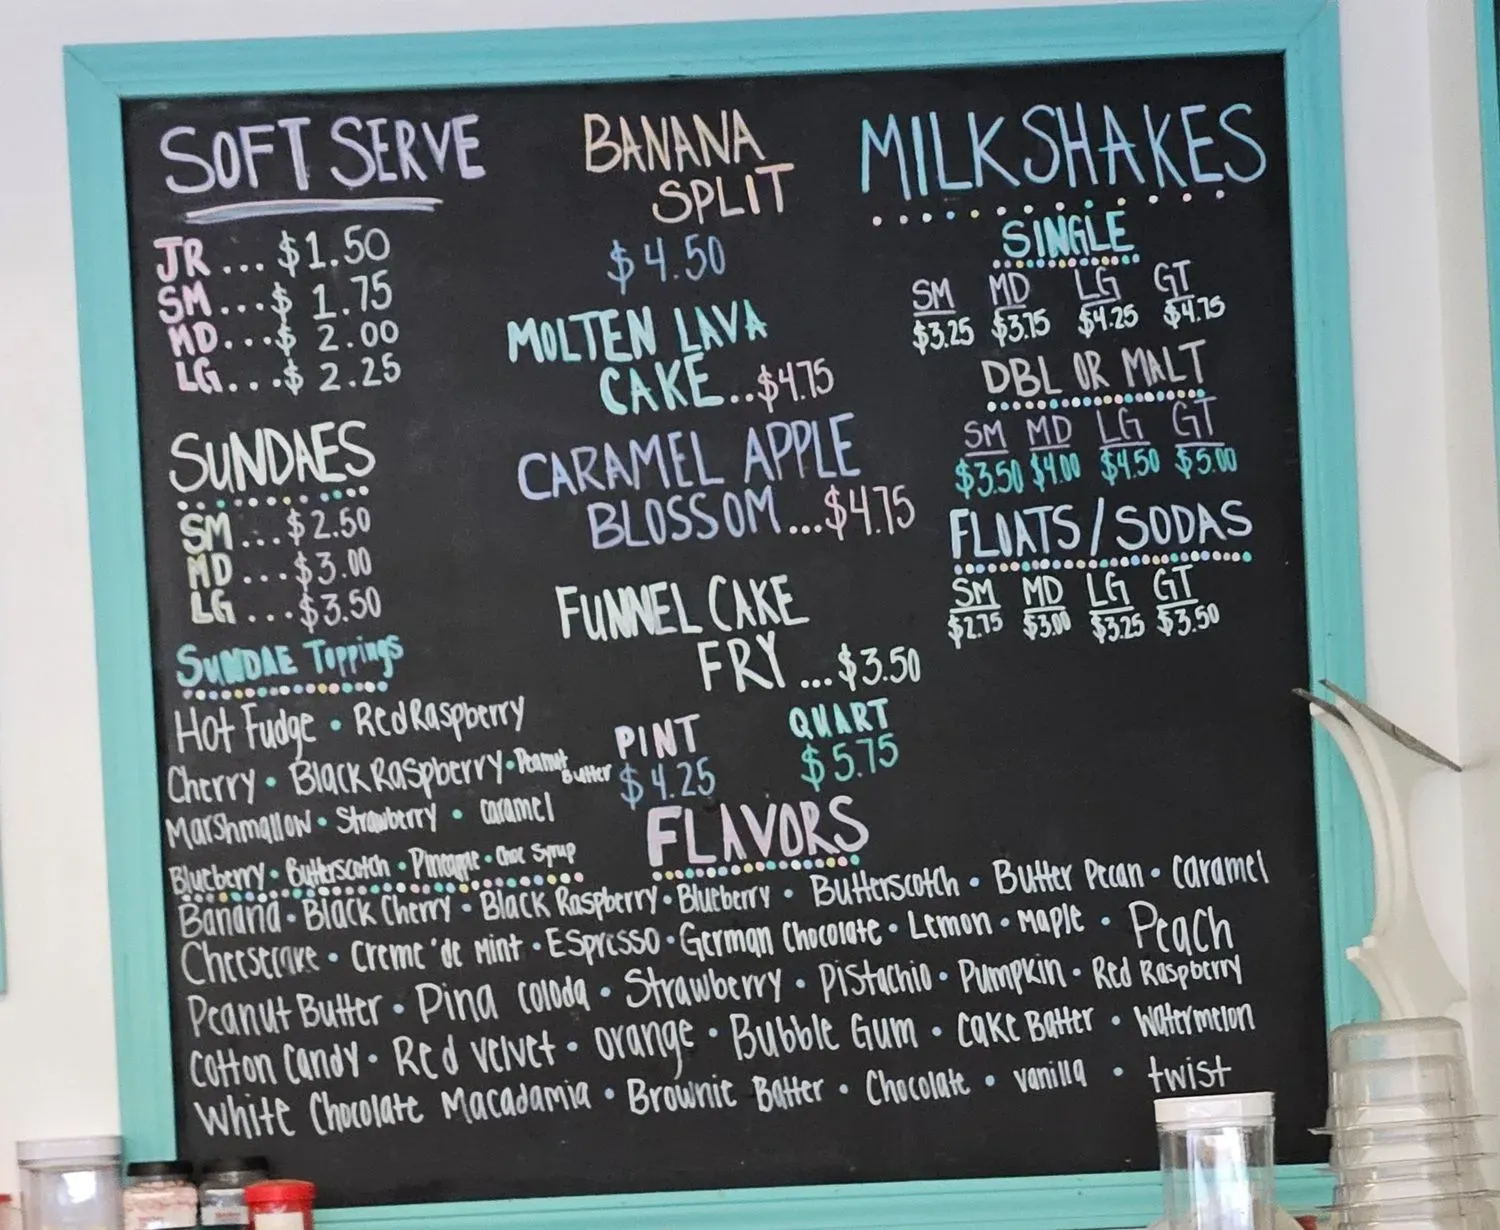 SOFT SERVE
JR... $1.50
SM...$ 1.75
MD...$ 2.00
LG...$ 2.25
SUNDAES
SM...$2.50
MD...$3.00
LG...$3.50
SUNDAE Toppings
Hot Fudge • Red Raspberry
Cherry • Black Raspberry • Peanut Butter
Marshmallow • Strawberry • Caramel
Blueberry • Butterscotch • Pineapple • Choc Syrup
BANANA
SPLIT
$4.50
MOLTEN LAVA
CAKE...$4.75
CARAMEL APPLE
BLOSSOM...$4.75
FUNNEL CAKE
FRY...$3.50
PINT QUART
$4.25 $5.75
MILKSHAKES
SINGLE
SM MD LG GT
$3.25 $3.75 $4.25 $4.75
DBL OR MALT
SM MD LG GT
$3.50 $4.00 $4.50 $5.00
FLOATS/SODAS
SM MD LG GT
$2.75 $3.00 $3.25 $3.50
FLAVORS
Banana • Black Cherry • Black Raspberry • Blueberry • Butterscotch • Butter Pecan • Caramel
Cheesecake • Creme 'de Mint • Espresso • German Chocolate • Lemon • Maple • Peach
Peanut Butter • Pina Colada • Strawberry • Pistachio • Pumpkin • Red Raspberry
Cotton Candy • Red Velvet • Orange • Bubble Gum • Cake Batter • Watermelon
White Chocolate Macadamia • Brownie Batter • Chocolate • Vanilla • twist